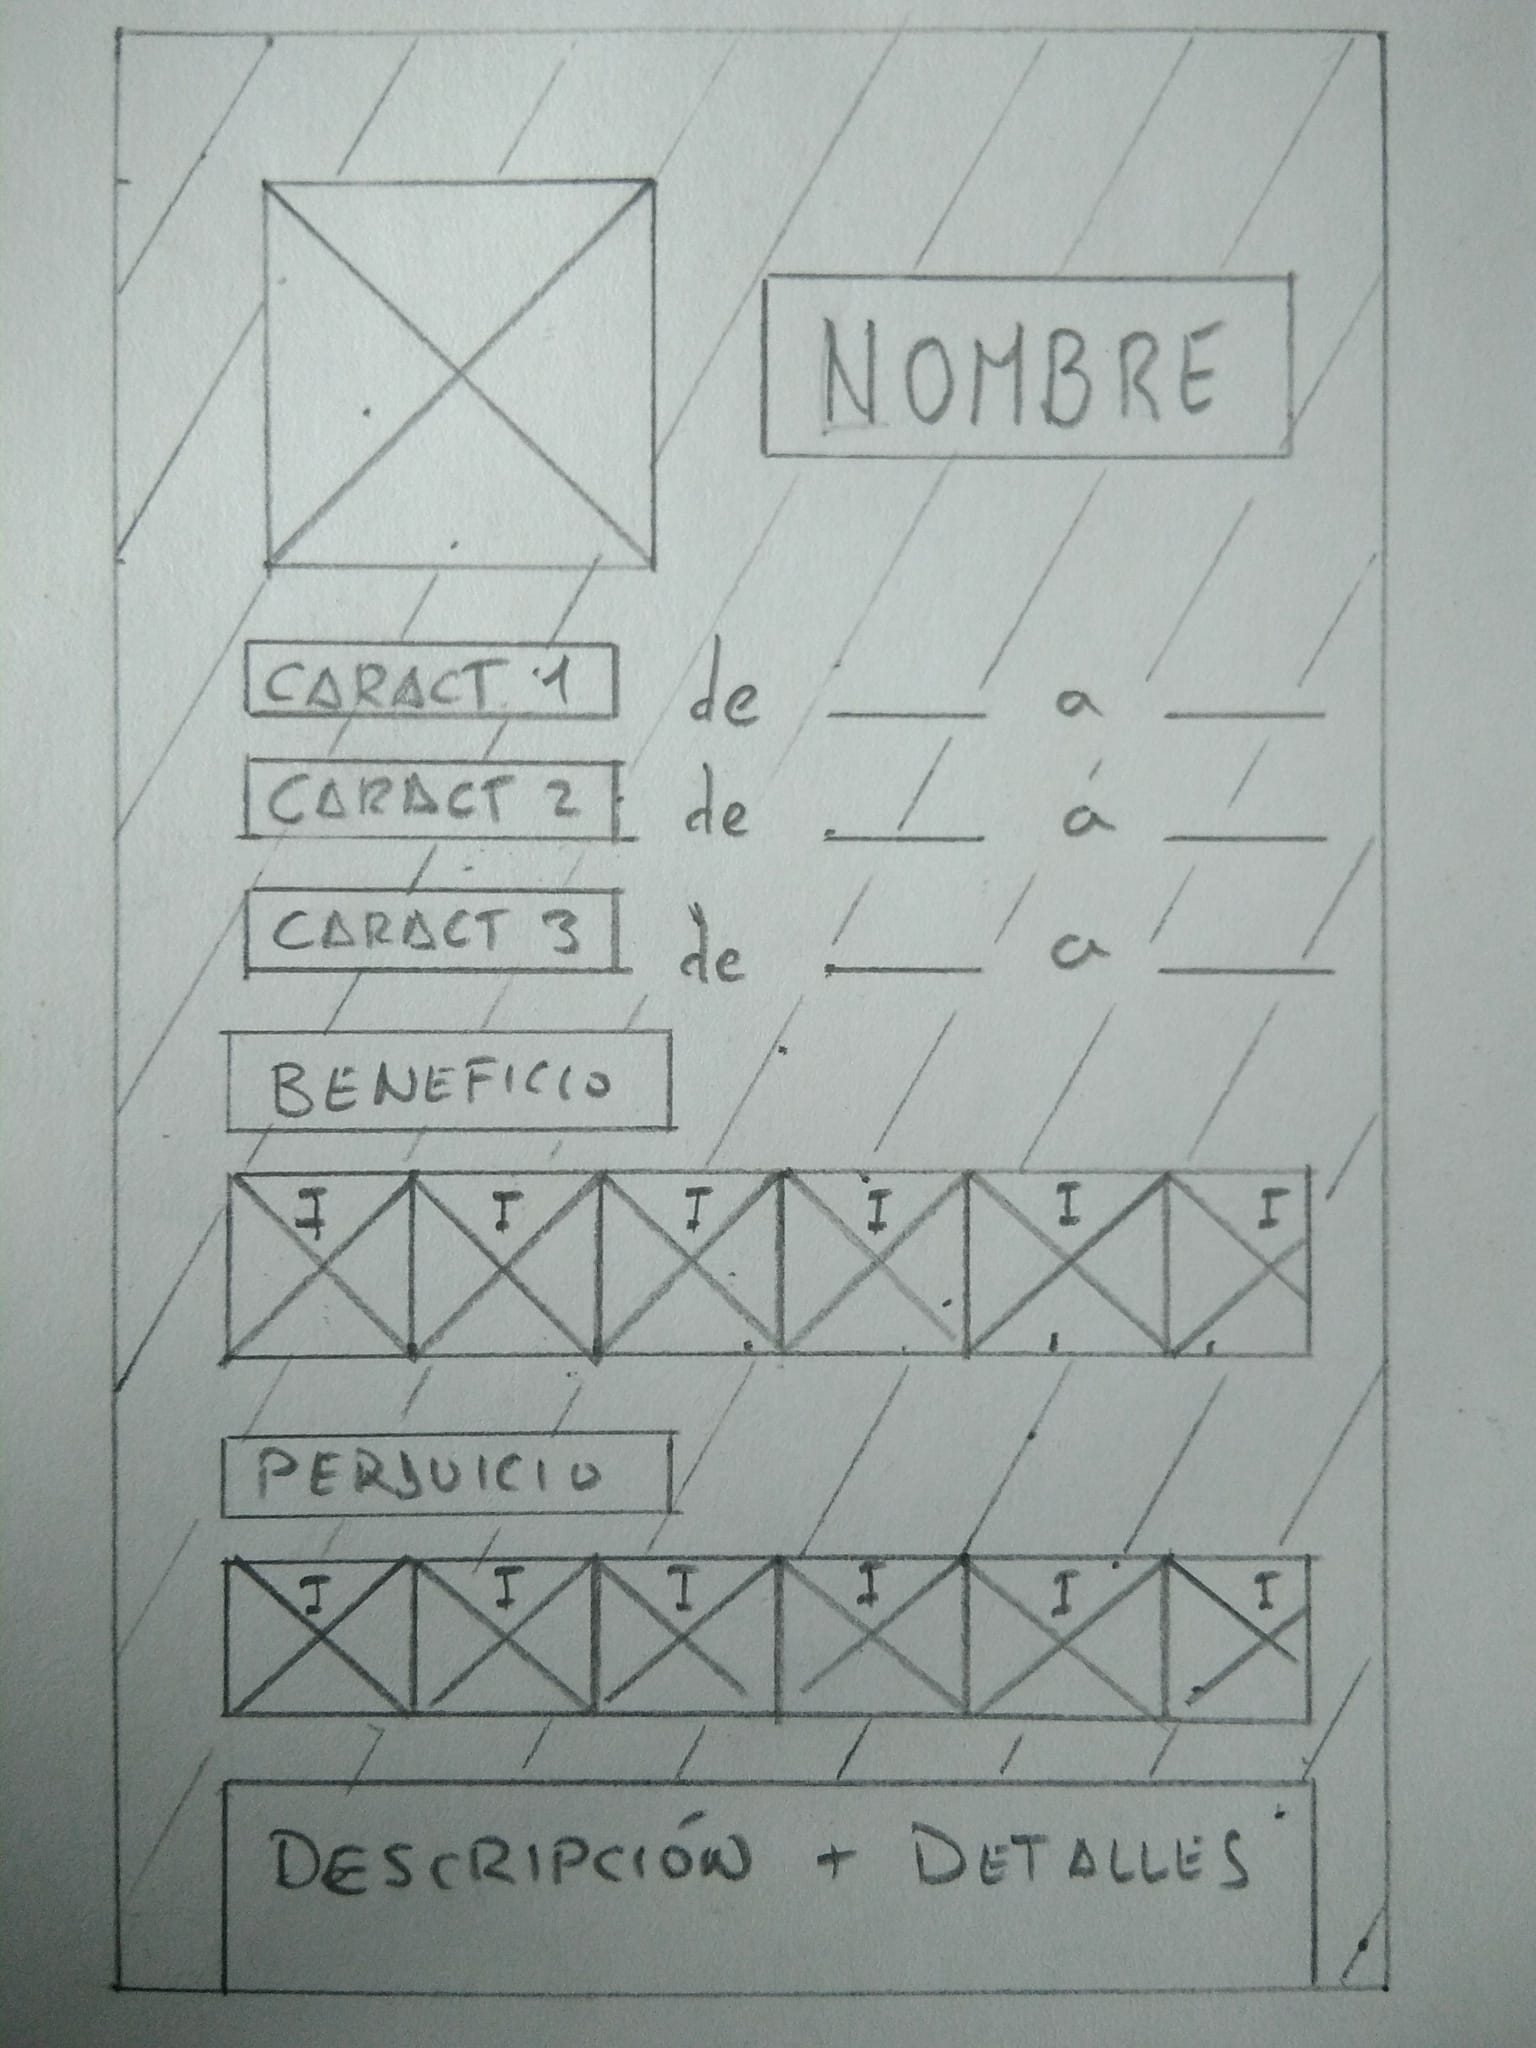 NOMBRE
CARACT 1 de ____ a ____
CARACT 2 de ____ á ____
CARACT 3 de ____ a ____
BENEFICIO
I I I I I I
PERJUICIO
I I I I I I
DESCRIPCIÓN + DETALLES